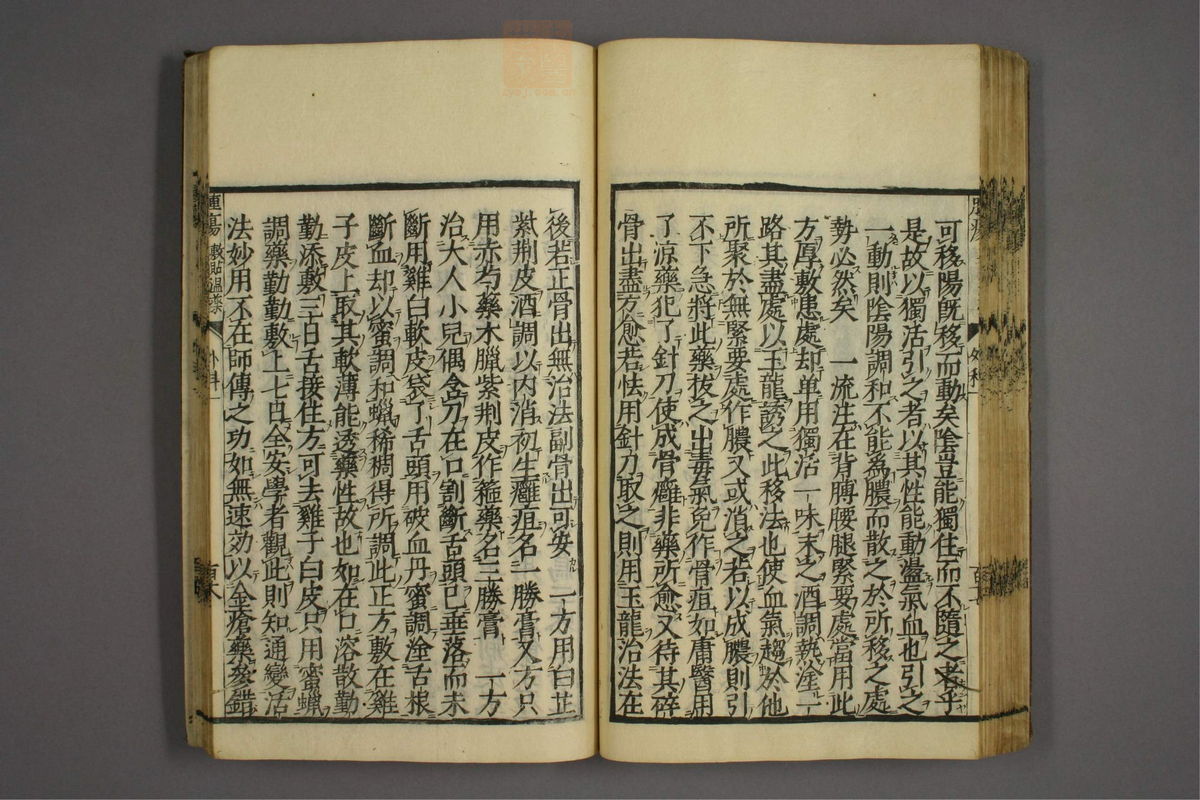 可移陽旣移而動矣陰豈能獨住而不隨之者乎
是故以獨活引之者以其性能動盪氣血也引之
一動則陰陽調和不能爲膿而散之於所移之處
勢必然矣 一流注在背膊腰腿緊要處當用此
方厚敷患處却单用獨活一味末之酒調熱塗一
路其盡處以玉龍誘之此移法也使血氣趨於他
所聚於無緊要處作膿又或消之若以成膿則引
不下急將此藥拔之出毒氣免作骨疽如庸醫用
了凉藥犯了針刀使成骨癰非藥所愈又待其碎
骨出盡方愈若怯用針刀取之則用玉龍治法在
後若正骨出無治法副骨出可安 一方用白芷
紫荆皮酒調以内消初生癰疽名一勝膏又方只
用赤芍藥木臘紫荆皮作箍藥名三勝膏 一方
治大人小兒偶含刀在口割斷舌頭已垂落而未
斷用雞白軟皮袋了舌頭用破血丹蜜調塗舌根
斷血却以蜜調和蠟稀稠得所調此正方敷在雞
子皮上取其軟薄能透藥性故也如在口溶散勤
勤添敷三日舌接住方可去雞子白皮只用蜜蠟
調藥勤勤敷上七日全安學者觀此則知通變活
法妙用不在師傳之功如無速効以金瘡藥叅錯
腫瘍 敷貼溫藥
外科一